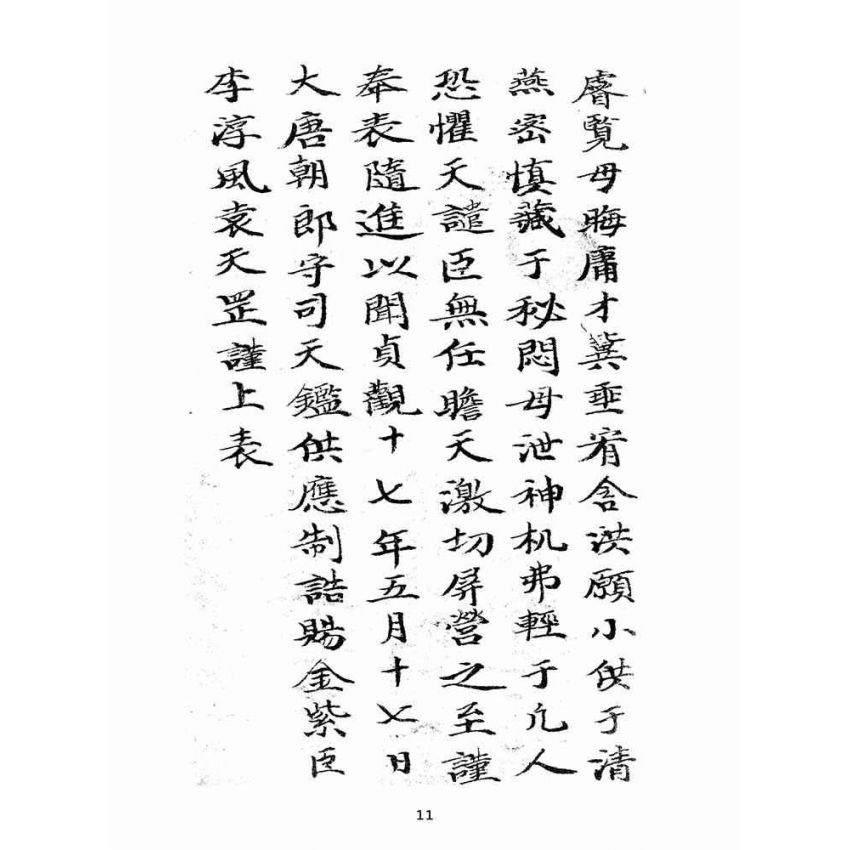 睿覧毋晦庸才冀垂宥含洪願小供于清
燕密慎藏于秘悶毋泄神机弗輕于凡人
恐懼天譴臣無任瞻天激切屏營之至謹
奉表隨進以聞貞觀十七年五月十七日
大唐朝郎守司天鑑供應制誥賜金紫臣
李淳風袁天罡謹上表
11